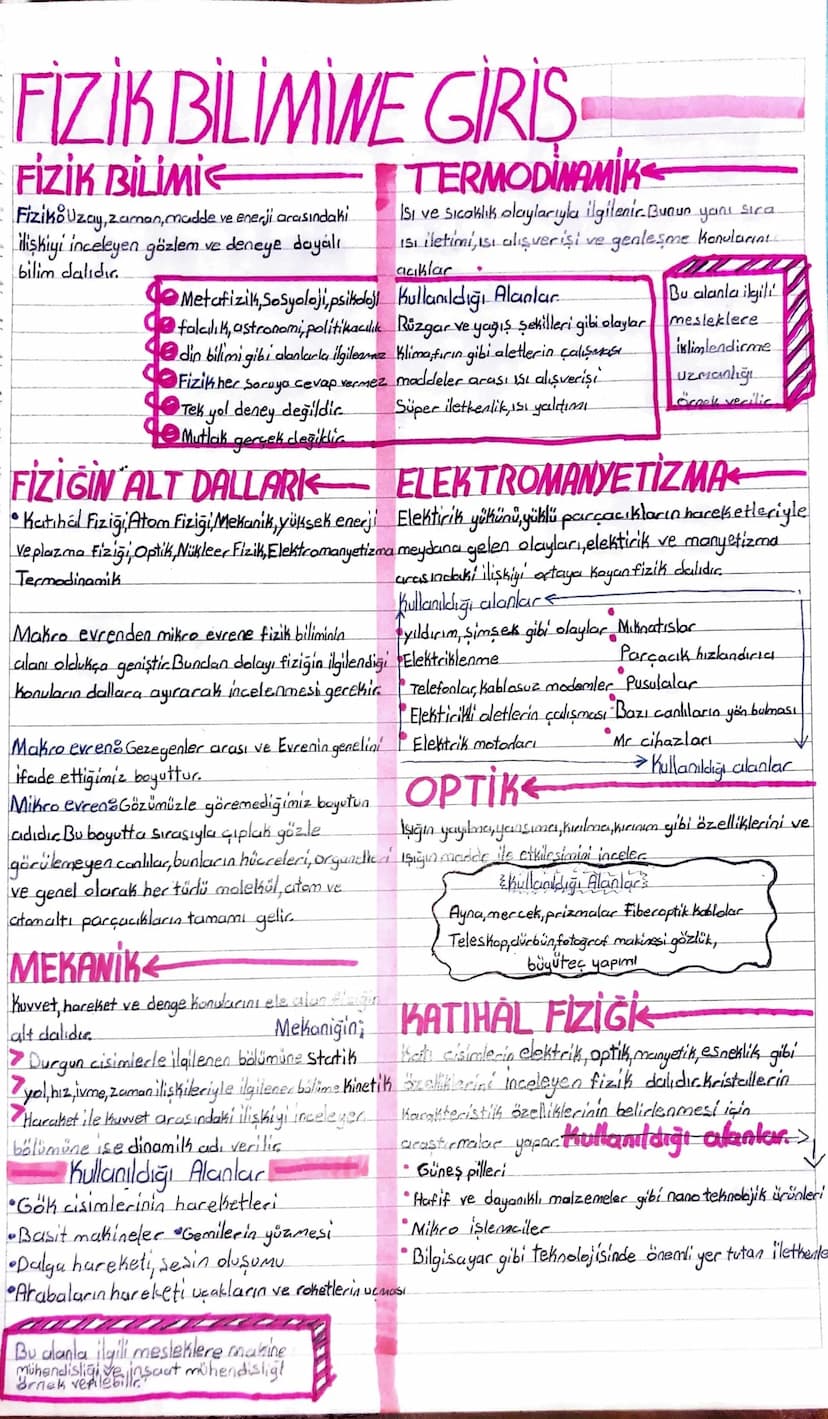 FİZİK BİLİMİNE GİRİŞ
FİZİK BİLİMİ
Fizik: Uzay, zaman, madde ve enerji arasındaki
ilişkiyi inceleyen gözlem ve deneye dayalı
bilim dalıdır.
Metafizik, Sosyoloji, psikoloji
falcılık, astronomi, politikacılık
din bilimi gibi alanlarla ilgilenmez
Fizik her soruya cevap vermez
Tek yol deney değildir.
Mutlak gerçek değildir.
FİZİĞİN ALT DALLARI
• Katıhâl Fiziği, Atom Fiziği, Mekanik, yüksek enerji
ve plazma fiziği, Optik, Nükleer Fizik, Elektromanyetizma
Termodinamik
Makro evrenden mikro evrene fizik biliminin
alanı oldukça geniştir. Bundan dolayı fiziğin ilgilendiği
konuların dallara ayırarak incelenmesi gerekir.
Makro evren: Gezegenler arası ve Evrenin genelini
ifade ettiğimiz boyuttur.
Mikro evren: Gözümüzle göremediğimiz boyutun
adıdır. Bu boyutta sırasıyla çıplak gözle
görülemeyen canlılar, bunların hücreleri, organelleri
ve genel olarak her türlü molekül, atom ve
atomaltı parçacıkların tamamı gelir.
MEKANİK
Kuvvet, hareket ve denge konularını ele alan fiziğin
alt dalıdır. Mekaniğin;
> Durgun cisimlerle ilgilenen bölümüne statik
> yol, hız, ivme, zaman ilişkileriyle ilgilenen bölüme kinetik
> Haraket ile kuvvet arasındaki ilişkiyi inceleyen
bölümüne ise dinamik adı verilir.
Kullanıldığı Alanlar
• Gök cisimlerinin hareketleri
• Basit makineler • Gemilerin yüzmesi
• Dalga hareketi, sesin oluşumu
• Arabaların hareketi uçakların ve roketlerin uçması
Bu alanla ilgili mesleklere makine
mühendisliği ve inşaat mühendisliği
örnek verilebilir.
TERMODİNAMİK
Isı ve sıcaklık olaylarıyla ilgilenir. Bunun yanı sıra
ısı iletimi, ısı alışverişi ve genleşme konularını
açıklar.
Kullanıldığı Alanlar
Rüzgar ve yağış şekilleri gibi olaylar
Klima, fırın gibi aletlerin çalışması
maddeler arası ısı alışverişi
Süper iletkenlik, ısı yalıtımı
Bu alanla ilgili
mesleklere
iklimlendirme
uzmanlığı
örnek verilir.
ELEKTROMANYETİZMA
Elektirik yükünü, yüklü parçacıkların hareketleriyle
meydana gelen olayları, elektirik ve manyetizma
arasındaki ilişkiyi ortaya koyan fizik dalıdır.
Kullanıldığı alanlar
• yıldırım, şimşek gibi olaylar • Mıknatıslar
• Elektriklenme Parçacık hızlandırıcı
• Telefonlar, kablosuz modemler • Pusulalar
• Elektirikli aletlerin çalışması • Bazı canlıların yön bulması
• Elektrik motorları • Mr cihazları
Kullanıldığı alanlar
OPTİK
Işığın yayılma, yansıma, kırılma, kırınım gibi özelliklerini ve
ışığın madde ile etkileşimini inceler.
Kullanıldığı Alanlar
Ayna, mercek, prizmalar Fiberoptik kablolar
Teleskop, dürbün, fotoğraf makinesi gözlük,
büyüteç yapımı
KATIHÂL FİZİĞİ
Katı cisimlerin elektrik, optik, manyetik, esneklik gibi
özelliklerini inceleyen fizik dalıdır. Kristallerin
karakteristik özelliklerinin belirlenmesi için
araştırmalar yapar. Kullanıldığı alanlar.
• Güneş pilleri
• Hafif ve dayanıklı malzemeler gibi nano teknolojik ürünleri
• Mikro işlemciler
• Bilgisayar gibi teknolojisinde önemli yer tutan